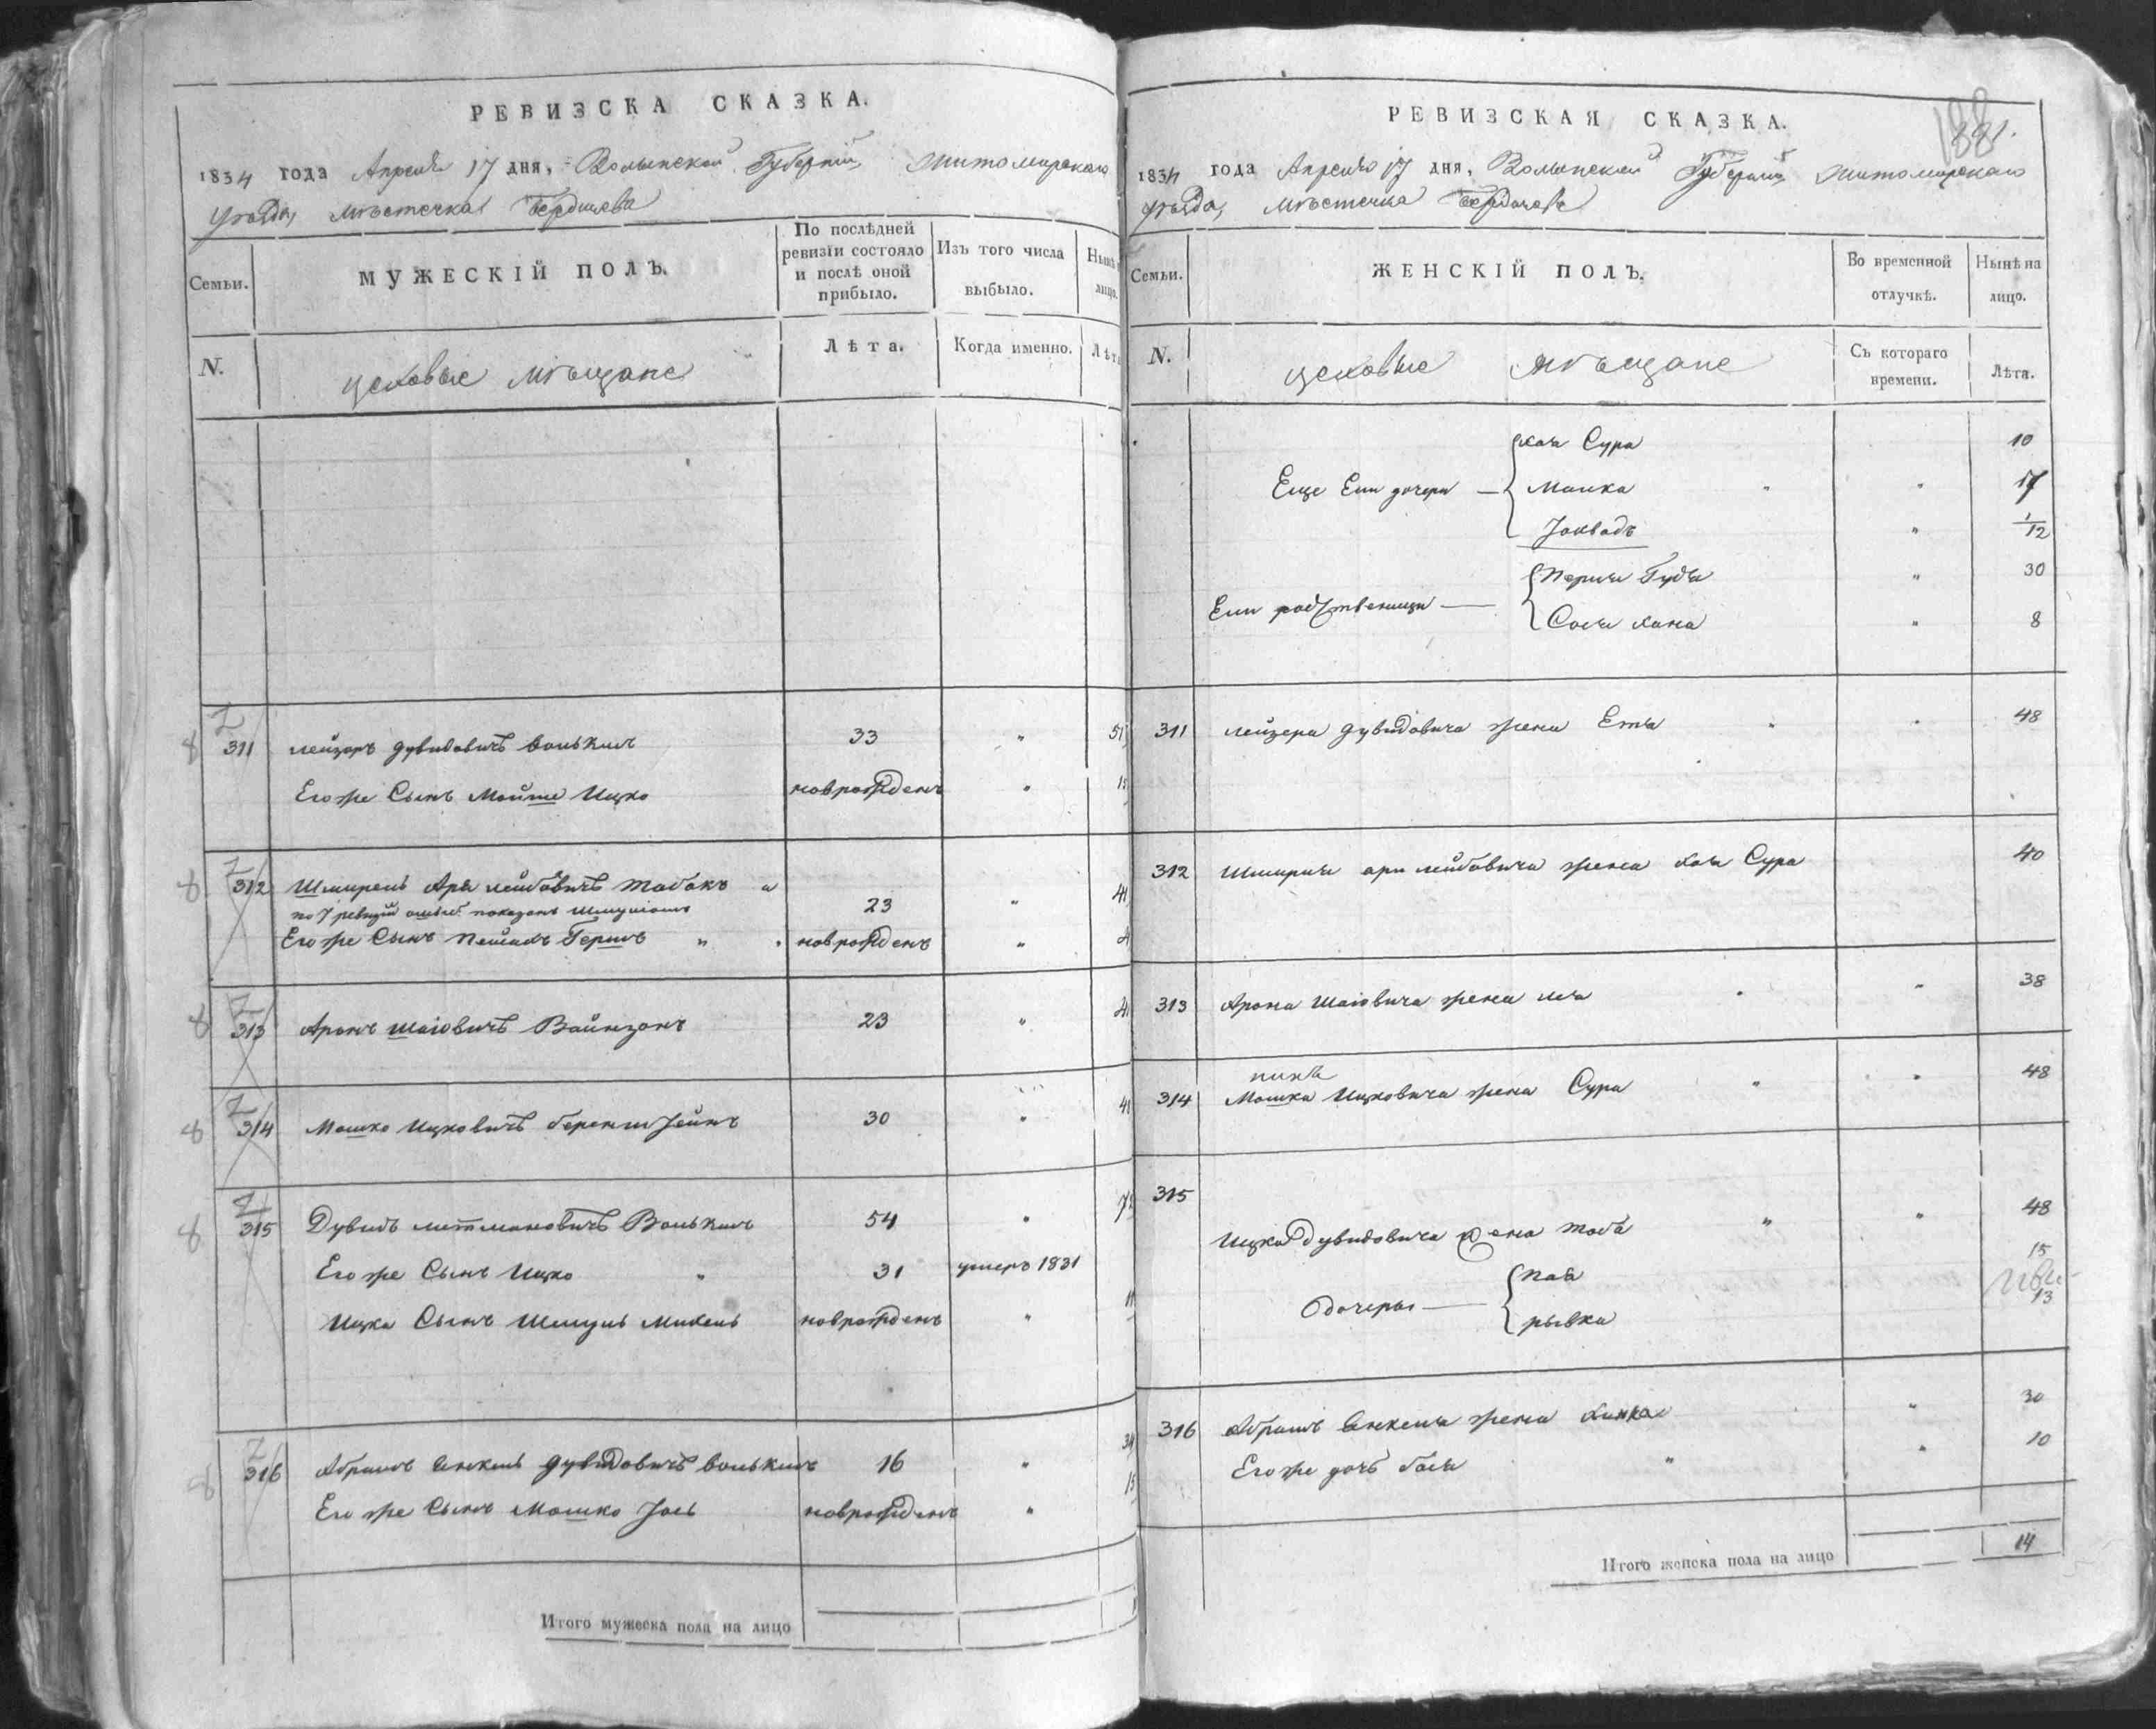 РЕВИЗСКА СКАЗКА.
1834 года Апреля 17 дня, Волынской Губернии, Житомирскаго
уѣзда, мѣстечка Бердичева
Семьи.
МУЖЕСКІЙ ПОЛЪ.
По послѣдней
ревизіи состояло
и послѣ оной
прибыло.
Изъ того числа
выбыло.
N.
цеховые мѣщане
Лѣта.
Когда именно.
311 Лейзоръ Дувидовичъ Волькисъ 33 "
Его же Сынъ Мойше Ицко новрожденъ "
312 Шмирель Аръ Лейбовичъ Табакъ
по 7 ревизіи показанъ 23 "
Его же Сынъ Пейсахъ Гершъ " новрожденъ "
313 Аронъ Шаіовичъ Вайнзонъ 23 "
314 Мошко Ицковичъ 30 "
315 Дувидъ Волькисъ 54 "
Его же Сынъ Ицко " 31 умеръ 1831
Ицка Сынъ Шмуль Михель новрожденъ "
316 Абрамъ Янкель Дувидовичъ Волькисъ 16 "
Его же Сынъ Мошко Іось новрожденъ "
Итого мужеска пола на лицо
РЕВИЗСКАЯ СКАЗКА.
1834 года Апреля 17 дня, Волынской Губерніи, Житомирскаго
уѣзда, мѣстечка Бердичева
Семьи.
ЖЕНСКІЙ ПОЛЪ.
Во временной
отлучкѣ.
Нынѣ на
лицо.
N.
цеховые мѣщане
Съ котораго
времени.
Лѣта.
Хая Сура 10
Еще Ели дочери Малка " "
Іохвадъ " 1/12
Перля Гудя " 30
Ели родственницы
Сося Хана " 8
311 Лейзера Дувидовича жена Етя " " 48
312 Шмирля Арн Лейбовича жена Хая Сура 40
313 Арона Шаіовича жена Лея " " 38
314 Мошка Ицковича жена Сура " " 48
315
Ицка Дувидовича жена Тоба " " 48
Пая 15
дочеры
рывка 13
316 Абрамъ Янкеля жена Ханка " 30
Его же дочь Бася " " 10
Итого женска пола на лицо 14